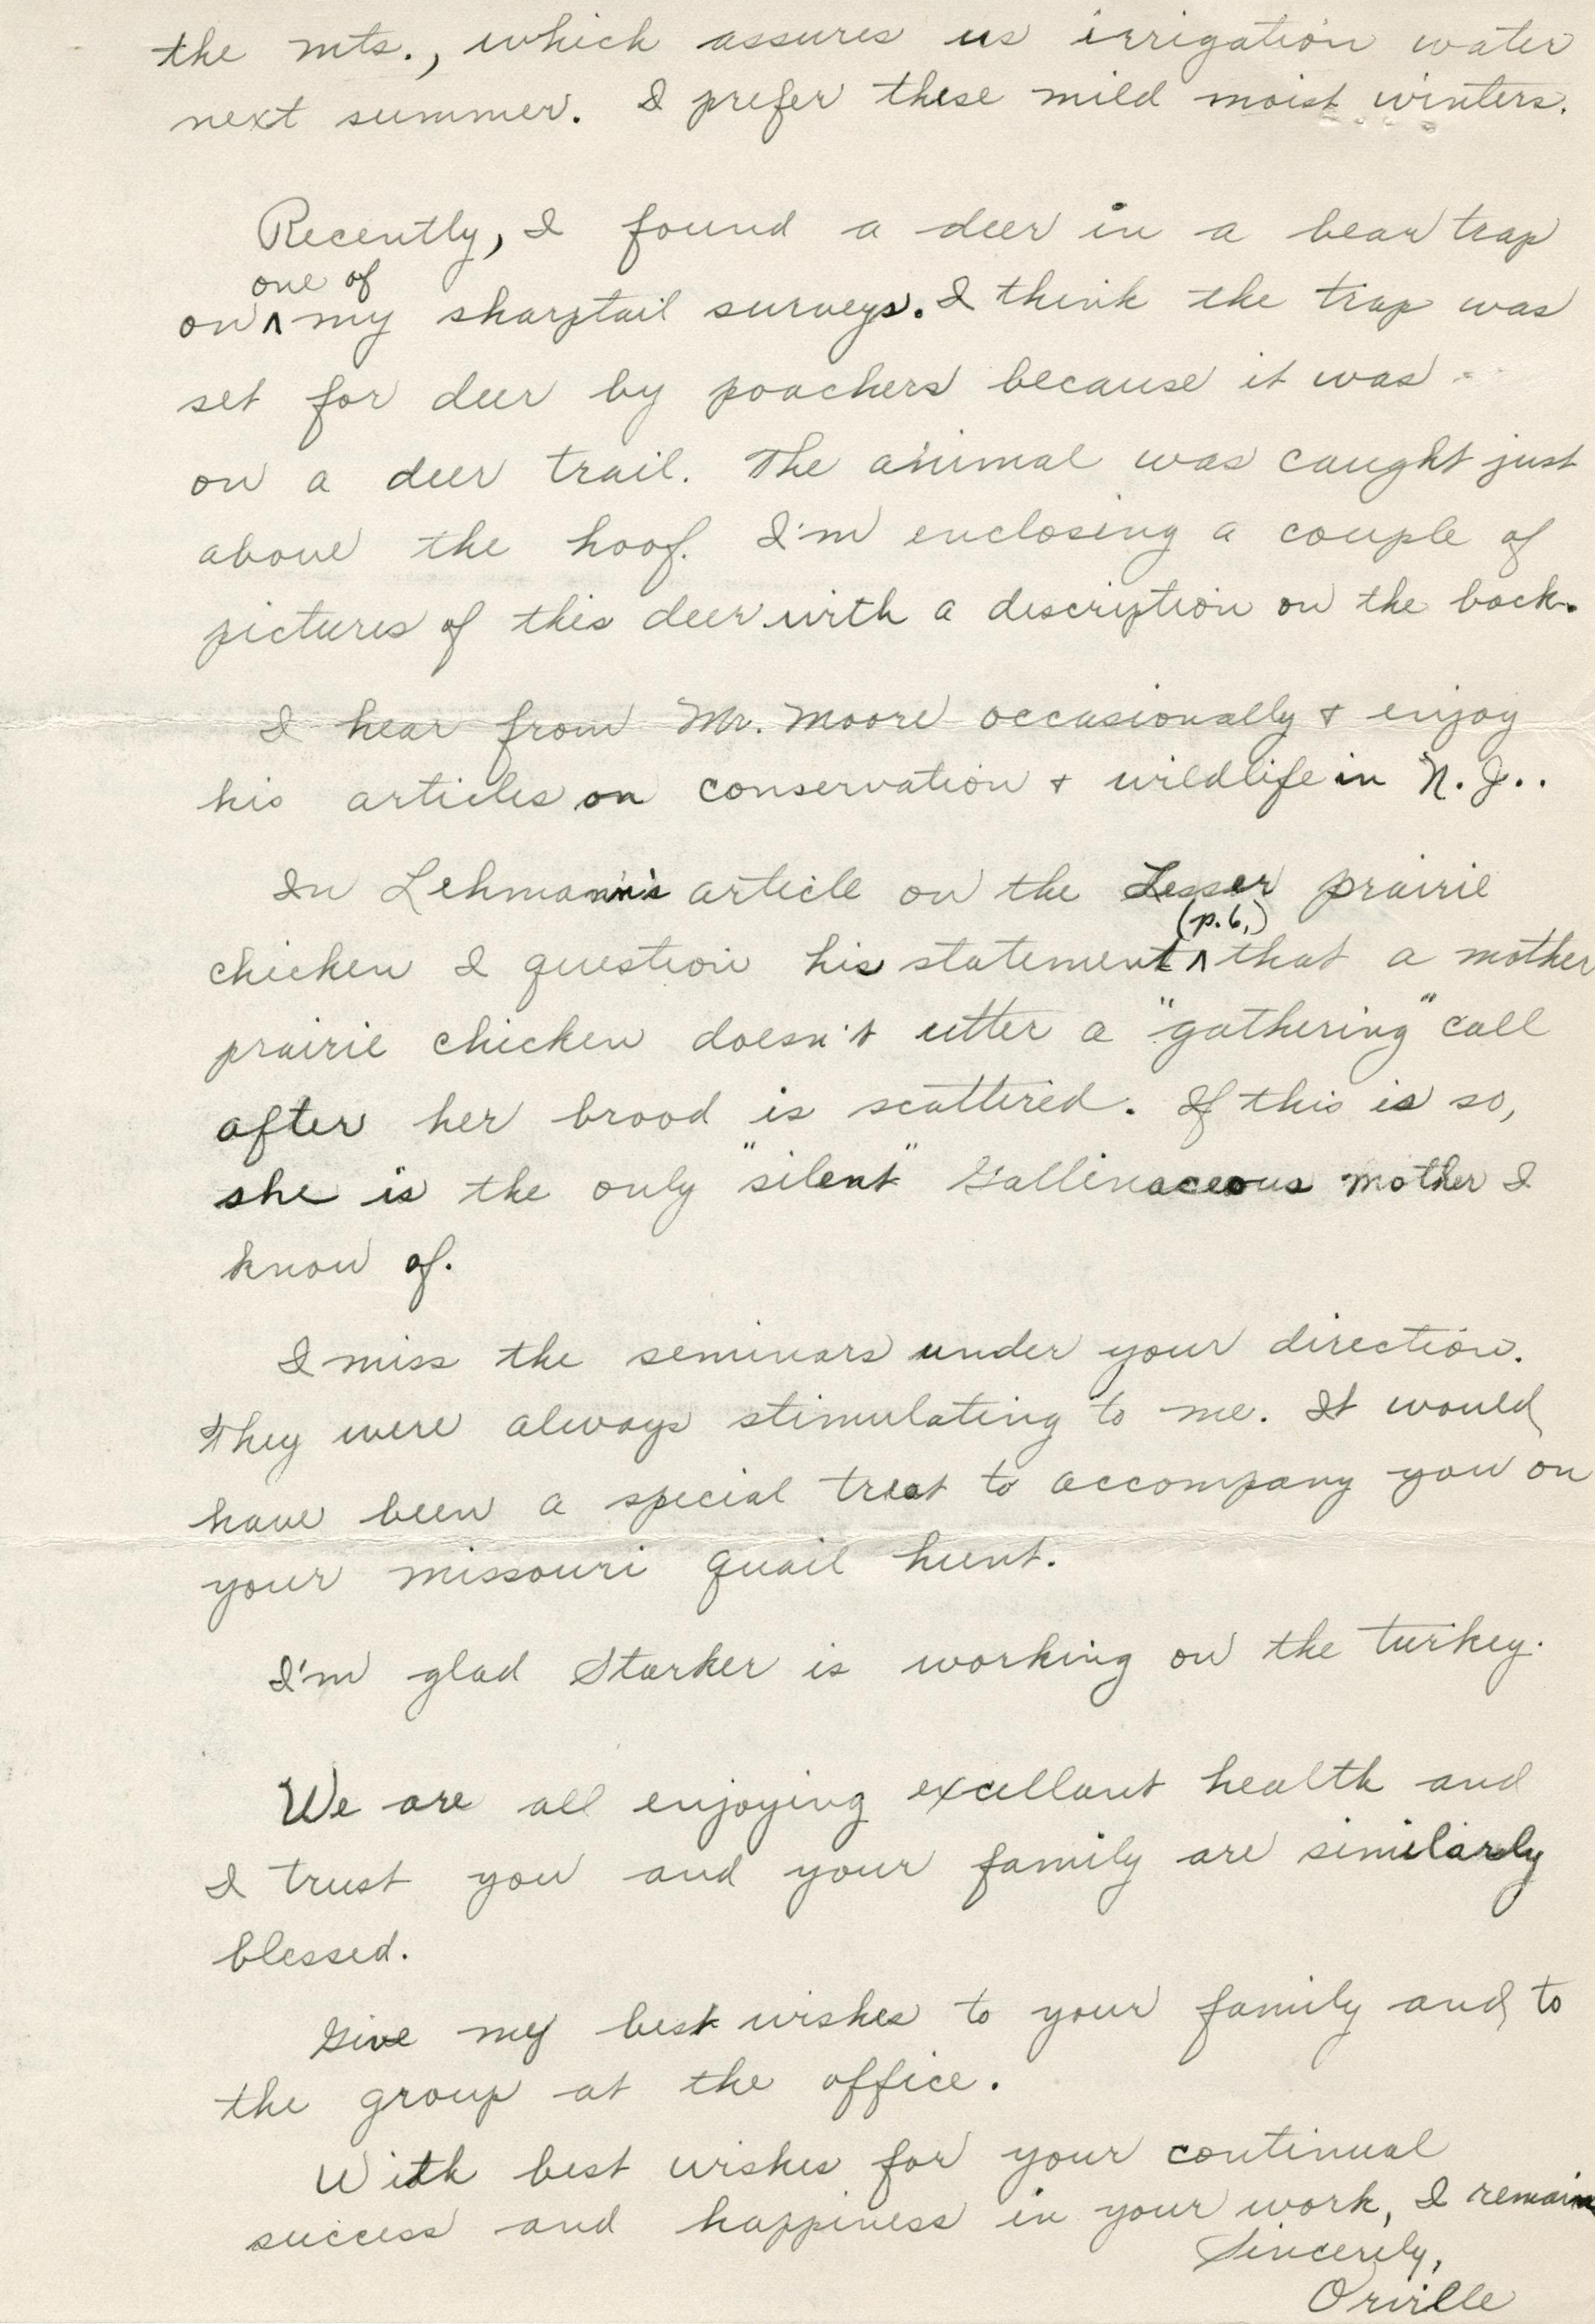 the mts., which assures us irrigation water
next summer. I prefer these mild moist winters.
Recently, I found a deer in a bear trap
one of
on ʌ my sharptail surveys. I think the trap was
set for deer by poachers because it was
on a deer trail. The animal was caught just
above the hoof. I'm enclosing a couple of
pictures of this deer with a description on the back.
I hear from Mr. Moore occasionally & enjoy
his articles on conservation & wildlife in N.J..
In Lehmann's article on the Lesser prairie
(p.6,)
chicken I question his statement ʌ that a mother
prairie chicken doesn't utter a "gathering" call
after her brood is scattered. If this is so,
she is the only "silent" Gallinaceous mother I
know of.
I miss the seminars under your direction.
They were always stimulating to me. It would
have been a special treat to accompany you on
your Missouri quail hunt.
I'm glad Starker is working on the turkey.
We are all enjoying excellant health and
I trust you and your family are similarly
blessed.
Give my best wishes to your family and to
the group at the office.
With best wishes for your continual
success and happiness in your work, I remain
Sincerely,
Orville